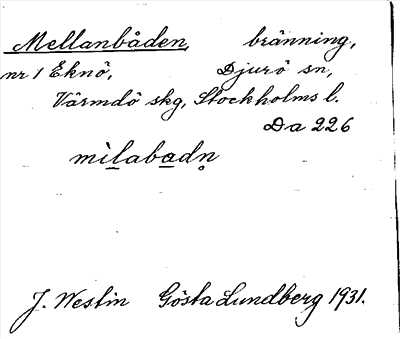 Mellanbåden, bränning,
nr 1 Eknö, Djurö sn,
Värmdö skg, Stockholms l.
Da 226
mìlabadn̥
J. Westin Gösta Lundberg 1931.